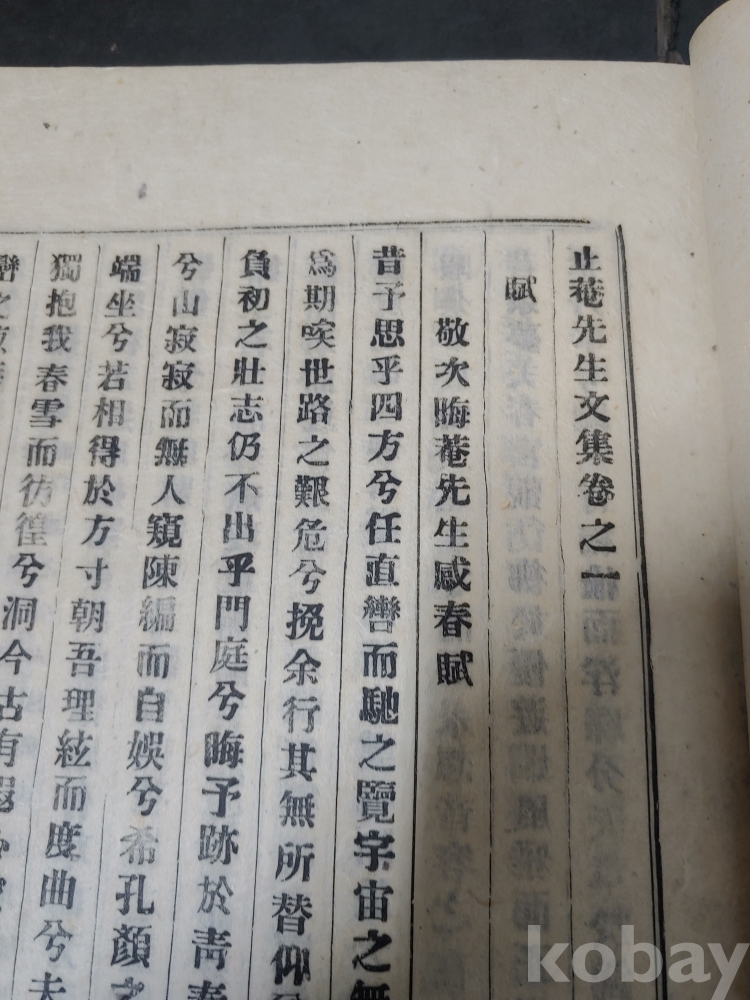 止菴先生文集卷之一
賦
敬次晦菴先生感春賦
昔予思乎四方兮任直轡而馳之覽宇宙之無
爲期唉世路之艱危兮挽余行其無所替仰
負初之壯志仍不出乎門庭兮晦予跡於靑春
兮山寂寂而無人窺陳編而自娛兮希孔顏之
端坐兮若相得於方寸朝吾理絃而度曲兮夫
獨抱我春雪而彷徨兮洞今古有
kobay